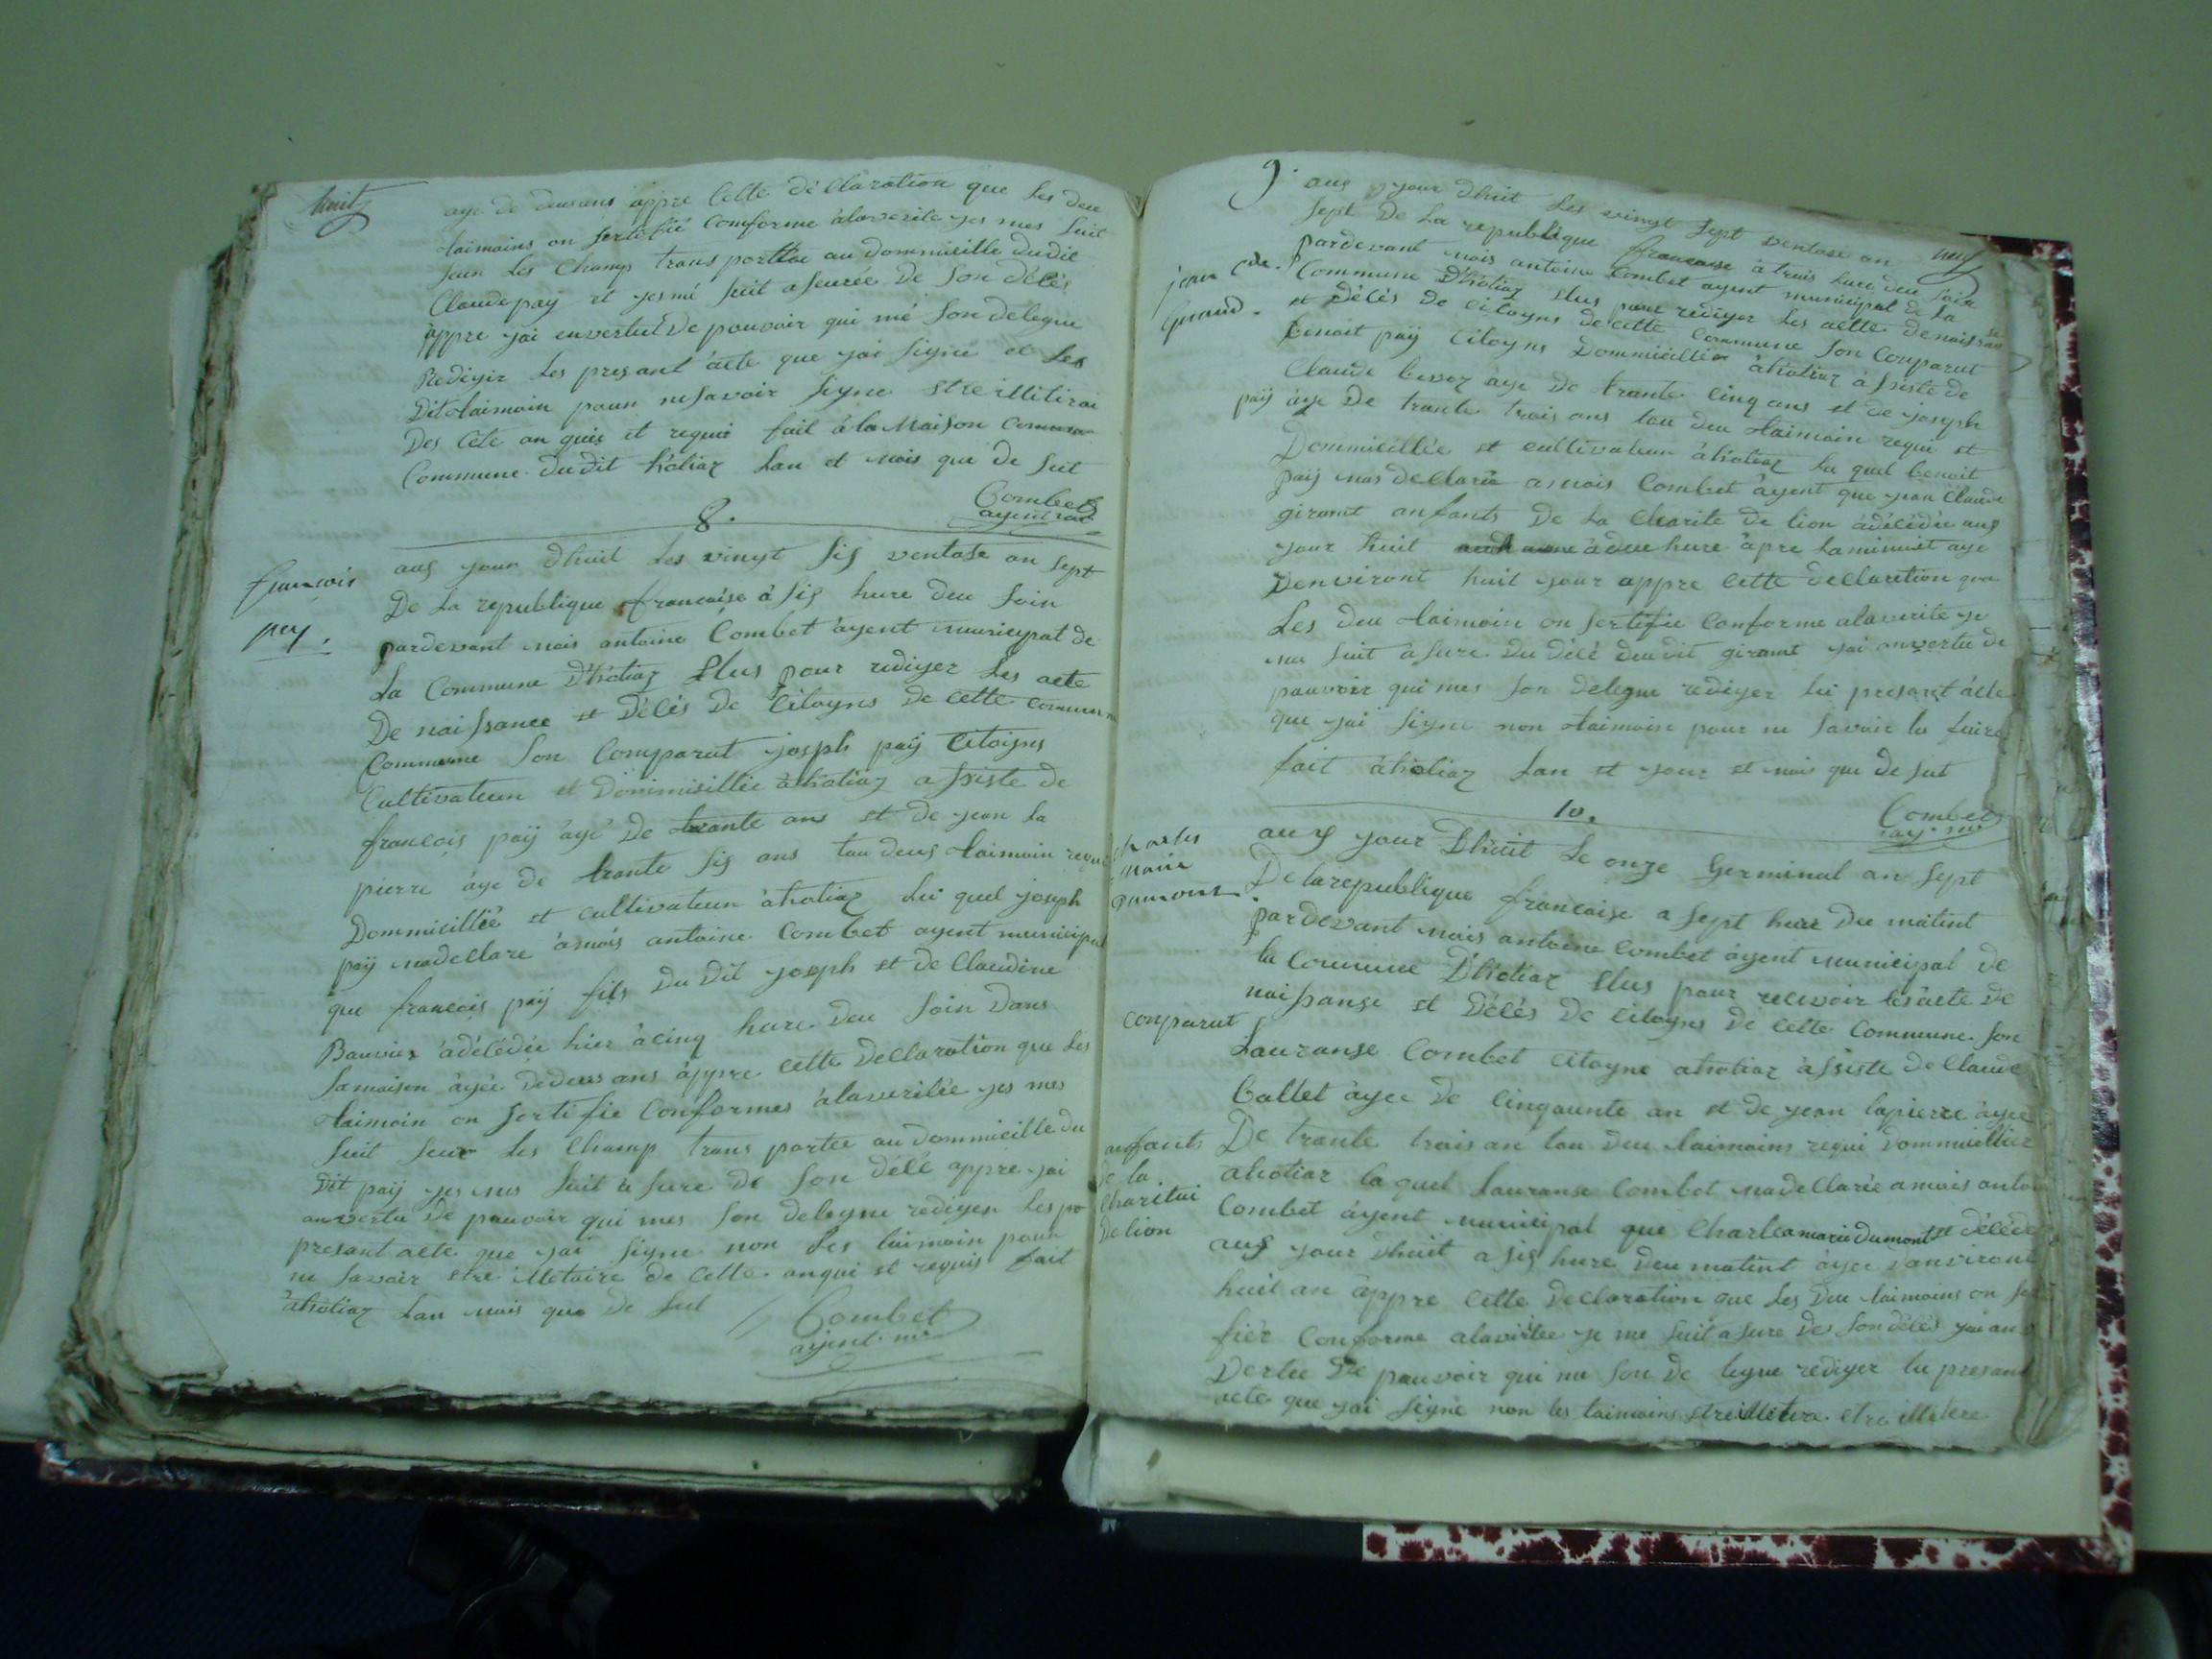 huit
aye de deusans appre Cette déClaration que les deu
taimains on sertéfié Comforme àlaverite yes mes suit
seur les Champ transporttée au dommicille dudit
Claude pay et yesmé suit aseurée De son délés
appre yai envertut De pouvoir qui mé son delegue
Redigir les presant acte que yai signé et les
Dit taimoin pour nesavoir signe
Des Cete an quis et requis fait à la Maison Commune
Commune dudit hotiaz lan et mois que de sut
Combet
agent
8.
francois
pey.
aug your dhuit les vingt sis ventose an sept
De la republique francaise à sis hure deu soir
pardevant mois antoine Combet àyent municypal de
la Commune D'hotiaz Elus pour rediger les acte
De naissance et Délés De Citoyns de Cette commune
Commune son Comparut joseph paÿ Citoyns
Cultivateur et Dommisillié àhotiaz assiste de
francois paÿ àyé De trante ans et De yean la
pierre àye de trante sis ans tou deus taimoin requi
Dommicillié et Cultivateur àhotiaz lei quel joseph
paÿ madellare àmois antoine Combet ayent municipal
que francois paÿ fils Du Dit yoseph et de Claudine
Bauvier àdélédée hier àcinq hure deu soir Dans
samaison àyée dedeus ans àppre Cette Declaration que les
taimoin on sertifie Conformes àlaveritée yes mes
suit seur les Champ trans portée au dommicille du
Dit paÿ yes mes suit asure De son délé appre yai
anvertu De pouvoir qui mes son delegue rediger les
presant acte que yai signe non les taimoin pour
ne savoir etre illetaire de Cette anqui et requis fait
àhotiaz lan mois que De sut
Combet
ajent mⁱᵉ
9.
neuf
aug your dhuit les vingt sept ventose an
sept De la republique francaise à trois hure deu soir
pardevant mois antoine Combet ayent municipal de la
jean Cde.
Giraud.
Commune D'hotiaz elus pour rediger les actte denaissan
et Délés de Citoyns de Cette Commune son Conparut
benoit paÿ Citoyns Dommicillié àhotiaz àssiste de
Claude bevoz àye De trante Cinq ans et de yoseph
paÿ àye De trante trois ans tou deu taimoin requi et
Dommicillée et cultivateur àhotiaz la quel benoit
paÿ mas dellarée amois Combet àyent que yean Claude
giramt anfants De la Charite de lion àdélédée aug
your huit àdeu hure àpre laminuit aye
Denviront huit your appre Cette declaretion que
les deu taimoin on sertifie Conforme alaverite ye
me suit àsure Du délé deudit giramt yai anvertu de
pauvoir qui mes son delegue rediger lei presant àcte
que yai signe non taimoin pour ne savoir la faire
fait àhotiaz lan et your et mois que de sut
Combet
ay. mⁱᵉ
10.
Charles
marie
Dumont.
aug your Dhuit le onze Germinal an sept
De larepublique francaise a sept hure Du matint
pardevant mois antoine Combet àyent municipal de
la Commune D'hotiaz Elus pour recevoir les acte de
naissanse et Délés De Citoyns De Cette Commune son
conparut Lauranse Combet Citoyne ahotiaz àssiste de Claude
Ballet àyee De Cinqaunte an et de yean lapierre àyee
anfants
de la
Charitai
De lion
De trante trois an tou deu taimoins requi dommicillier
ahotiaz la quel Lauranse Combet madellarée amois antoi
Combet àyent municipal que Charleamarie Dumont et délédé
aug your dhuit a sis hure deu matint àyee danviront
huit an àppre Cette Declaration que les Deu taimoins on ser
fiér Conforme alavéritee ye me suit asure des son délés yai an
Vertu De pauvoir qui me son De legue rediger la presant
acte que yai signé non les taimoins etre illetere